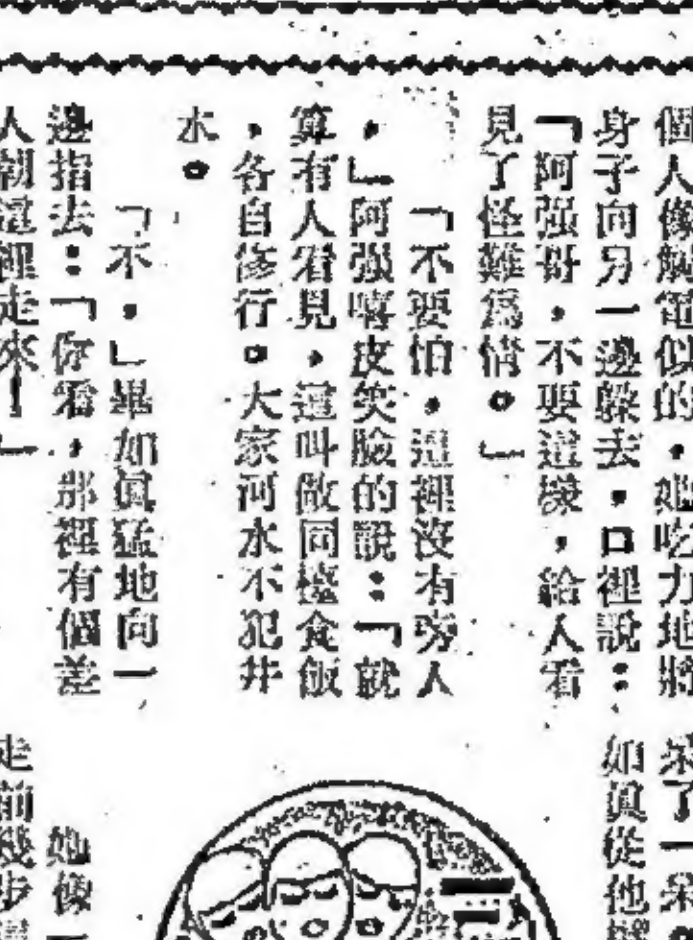 個人像觸電似的，她吃力地將
身子向另一邊躱去，口裡說：
「阿强哥，不要這樣，給人看
見了怪難爲情。」
「不要怕，這裡沒有旁人
，」阿强嘻皮笑臉的說：「就
算有人看見，這叫做同檯食飯
，各自修行。大家河水不犯井
水。
「不，」畢如眞猛地向一
邊指去：「你看，那裡有個差
人朝這裡走來！」
呆了一呆。
如眞從他
她像一
走前幾步